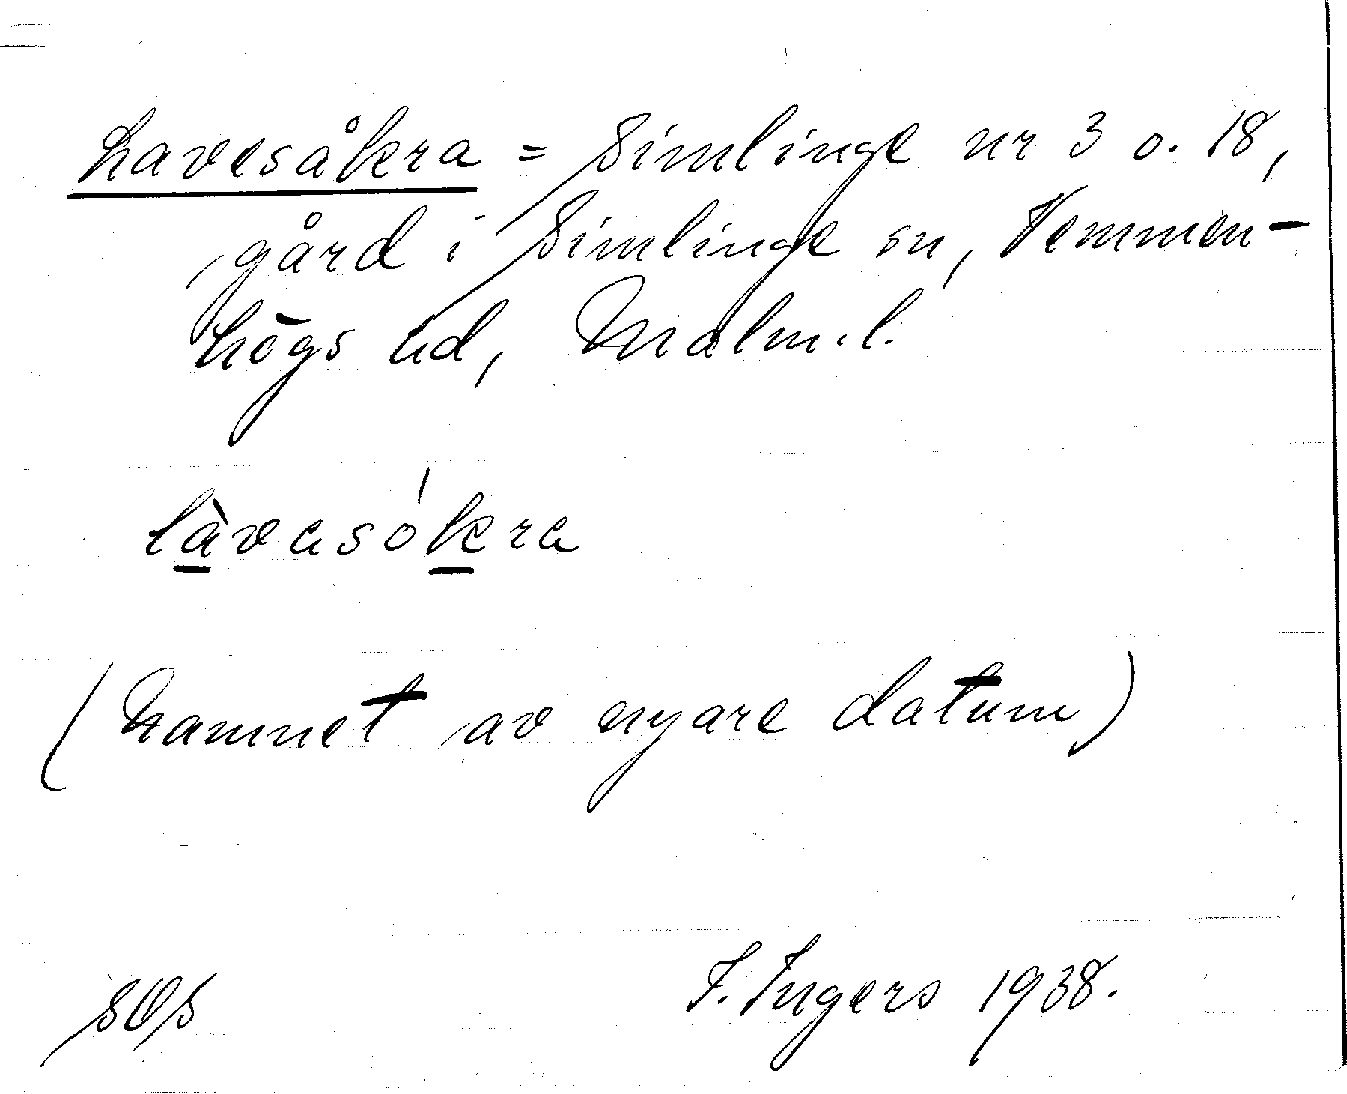 Lavesåkra = Simlinge nr 3 o. 18,
gård i Simlinge sn, Vemmen-
högs hd, Malm.l.
làvasókra
(Namnet av nyare datum)
SOS
I. Ingers 1938.